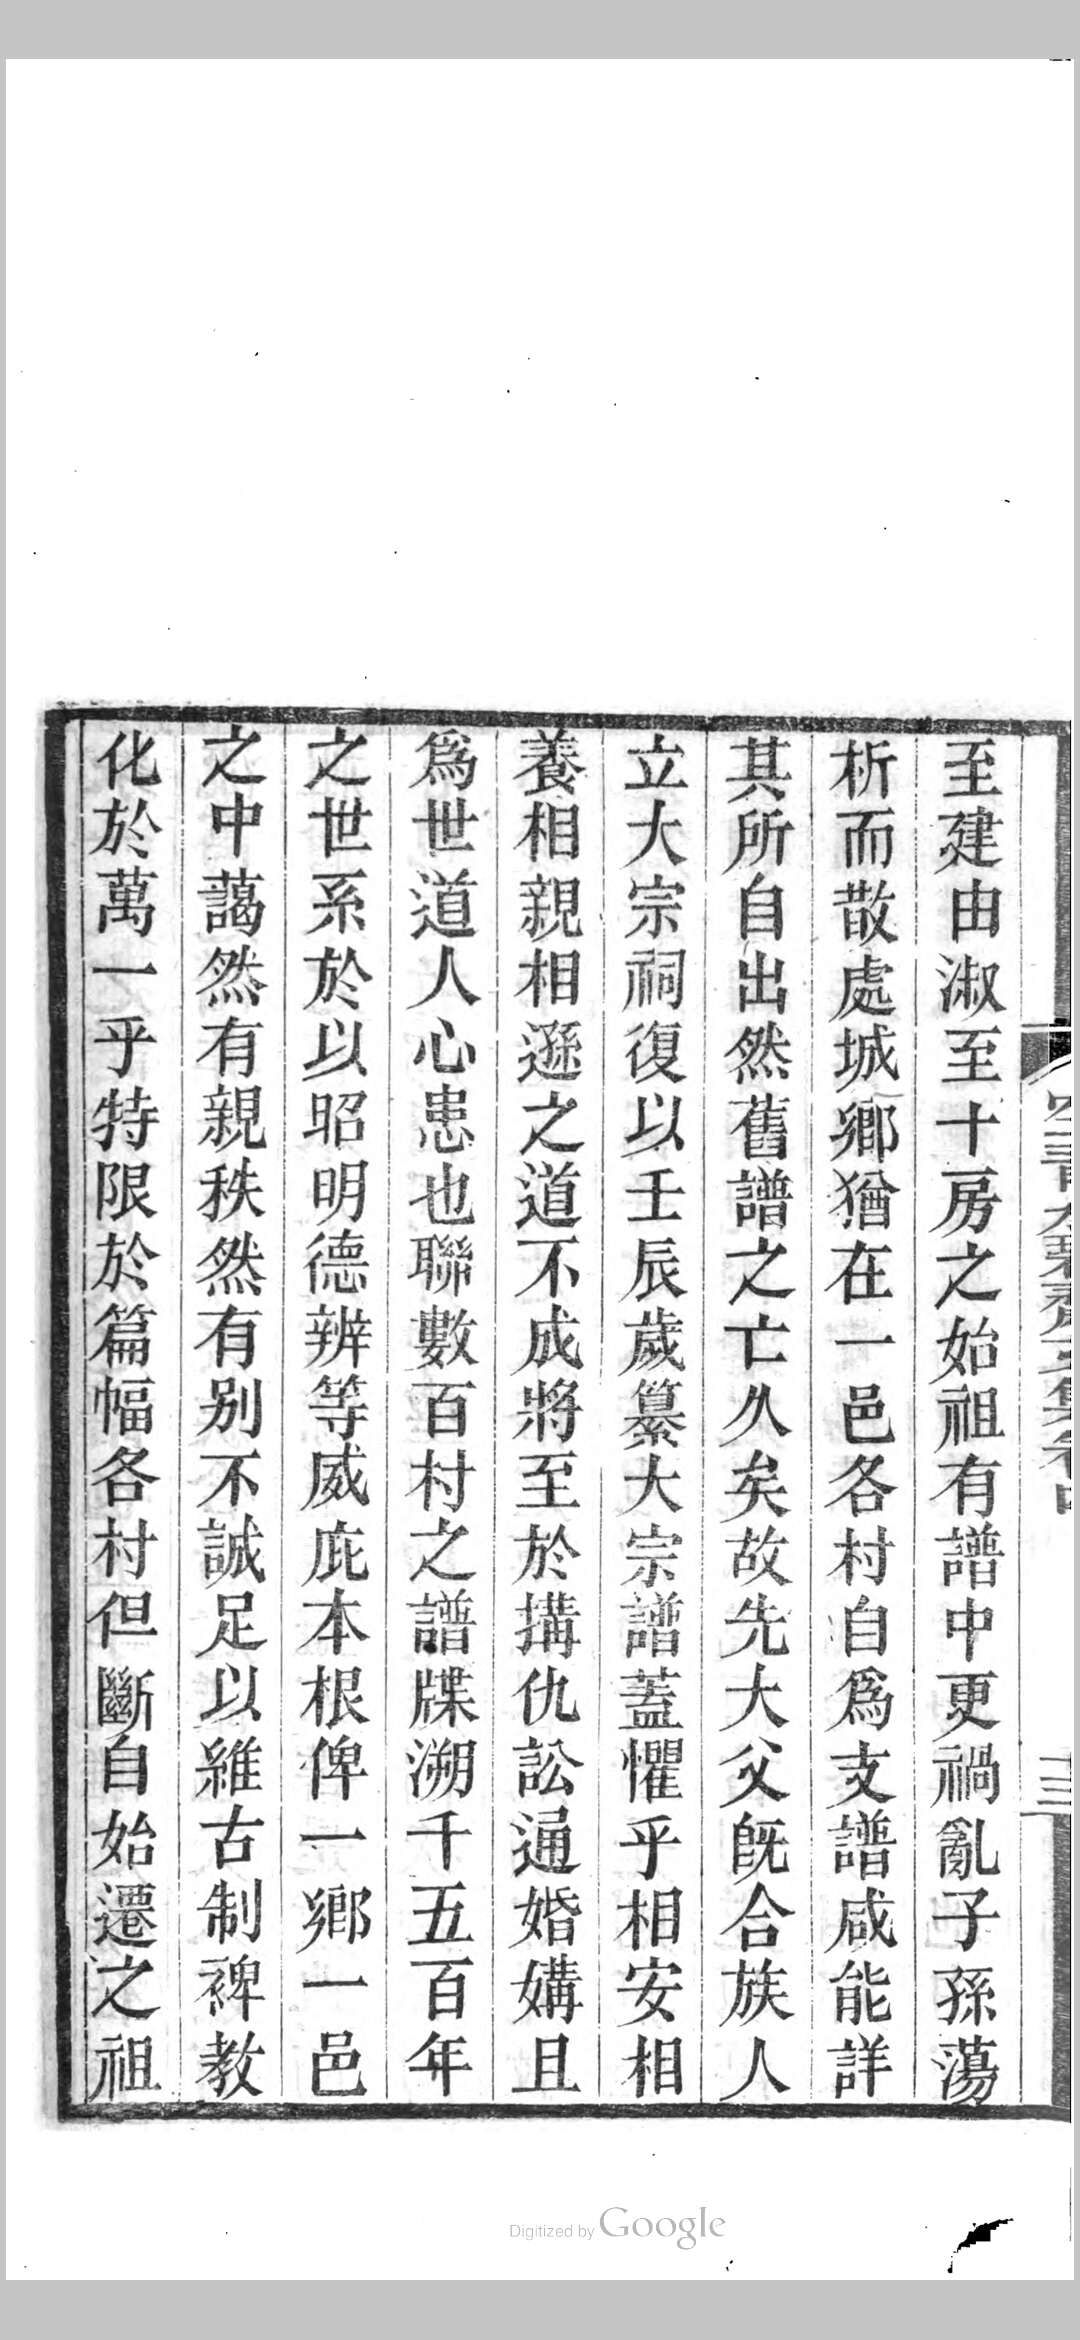 至建由淑至十房之始祖有譜中更禍亂子孫蕩
析而散處城鄉猶在一邑各村自爲支譜咸能詳
其所自出然舊譜之亡久矣故先大父旣合族人
立大宗祠復以壬辰歲纂大宗譜蓋懼乎相安相
養相親相遜之道不成將至於搆仇訟通婚媾且
爲世道人心患也聯數百村之譜牒溯千五百年
之世系於以昭明德辨等威庇本根俾一鄉一邑
之中藹然有親秩然有別不誠足以維古制裨教
化於萬一乎特限於篇幅各村但斷自始遷之祖
Digitized by Google